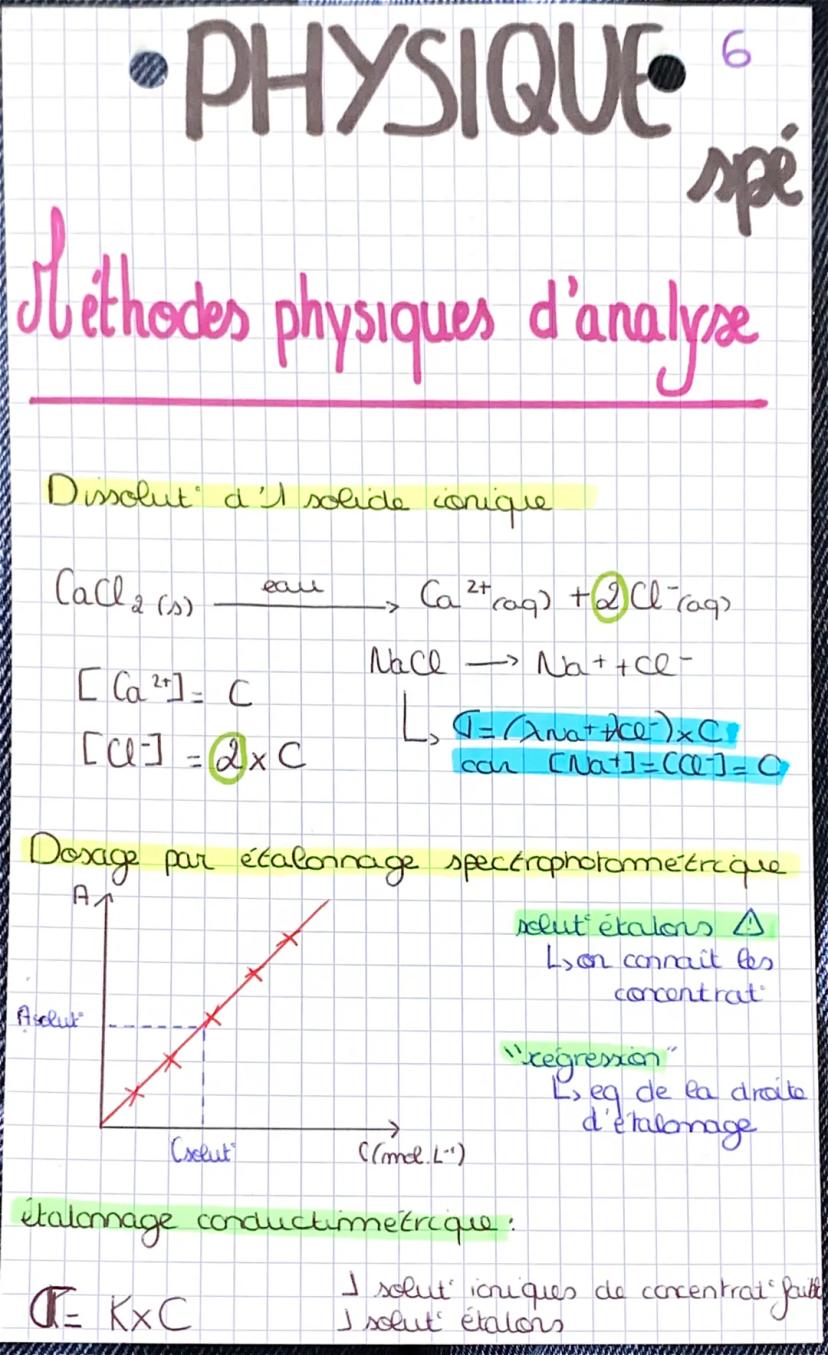 PHYSIQUE 6
spé
Méthodes physiques d'analyse
Dissolut° d'1 solide ionique
CaCl2 (s) eau → Ca2+(aq) + 2Cl-(aq)
NaCl → Na+ + Cl-
[Ca2+] = C
[Cl-] = 2 x C
↳ σ = (λNa+ + λCl-) x C
car [Na+] = [Cl-] = C
Dosage par étalonnage spectrophotométrique
A
Asolut°
Csolut°
C(mol.L-1)
solut° étalons ⚠
↳ on connaît les
concentrat°
"régression"
↳ eq de la droite
d'étalonage
étalonnage conductimétrique :
σ = K x C
solut° ioniques de concentrat° faible
solut° étalons